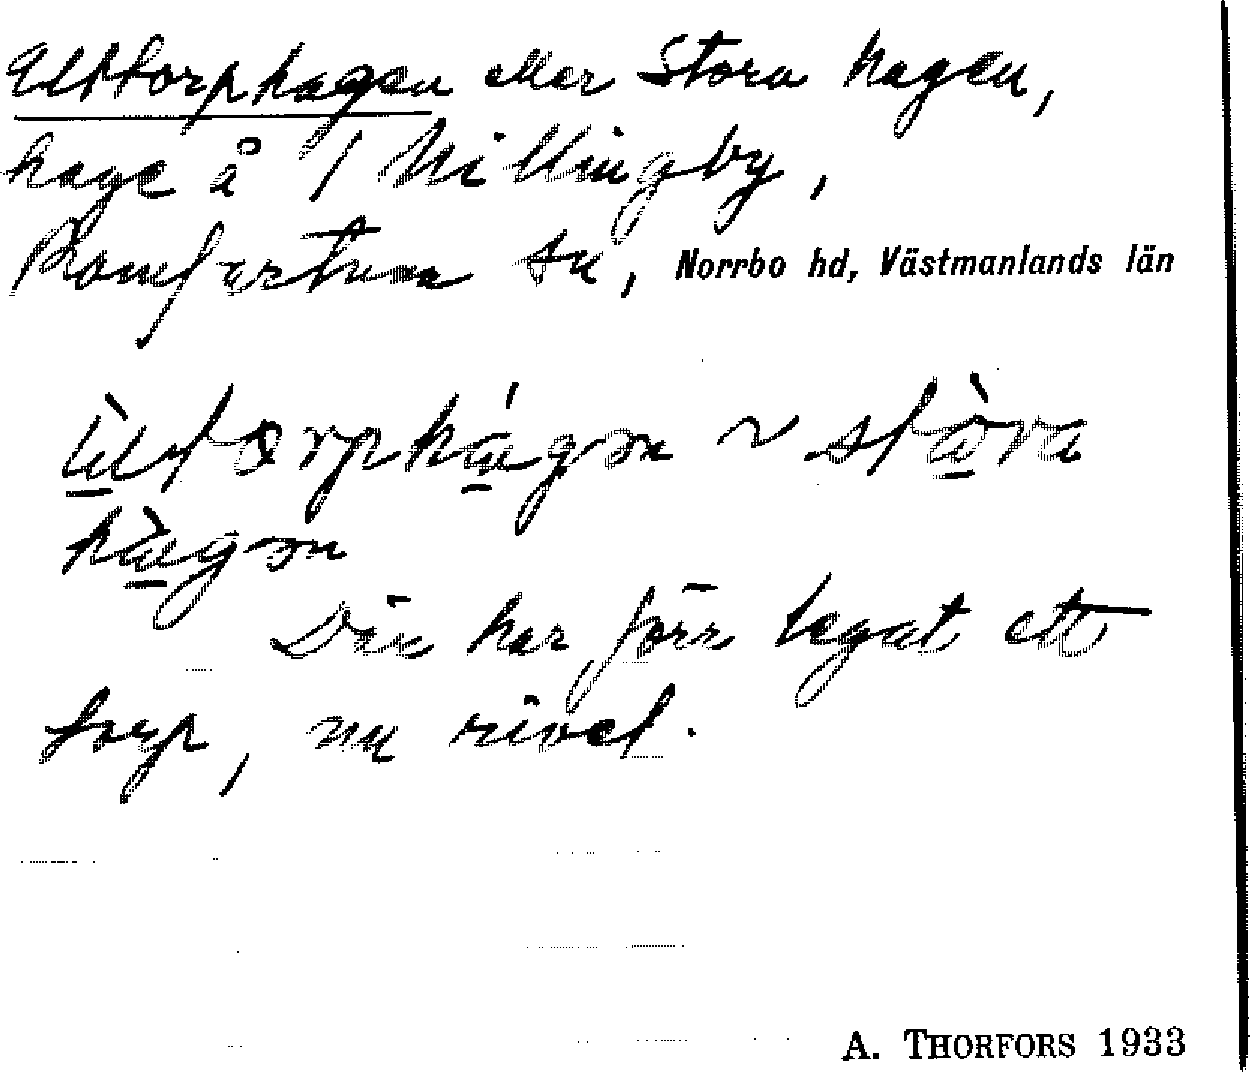 Ulttorphagen eller Stora hagen,
hage å 1 Nillingby,
Romfartuna sn, Norrbo hd, Västmanlands län
ùltorphágən ~ stòra
hàgən
Där har förr legat ett
torp, nu rivet.
A. THORFORS 1933